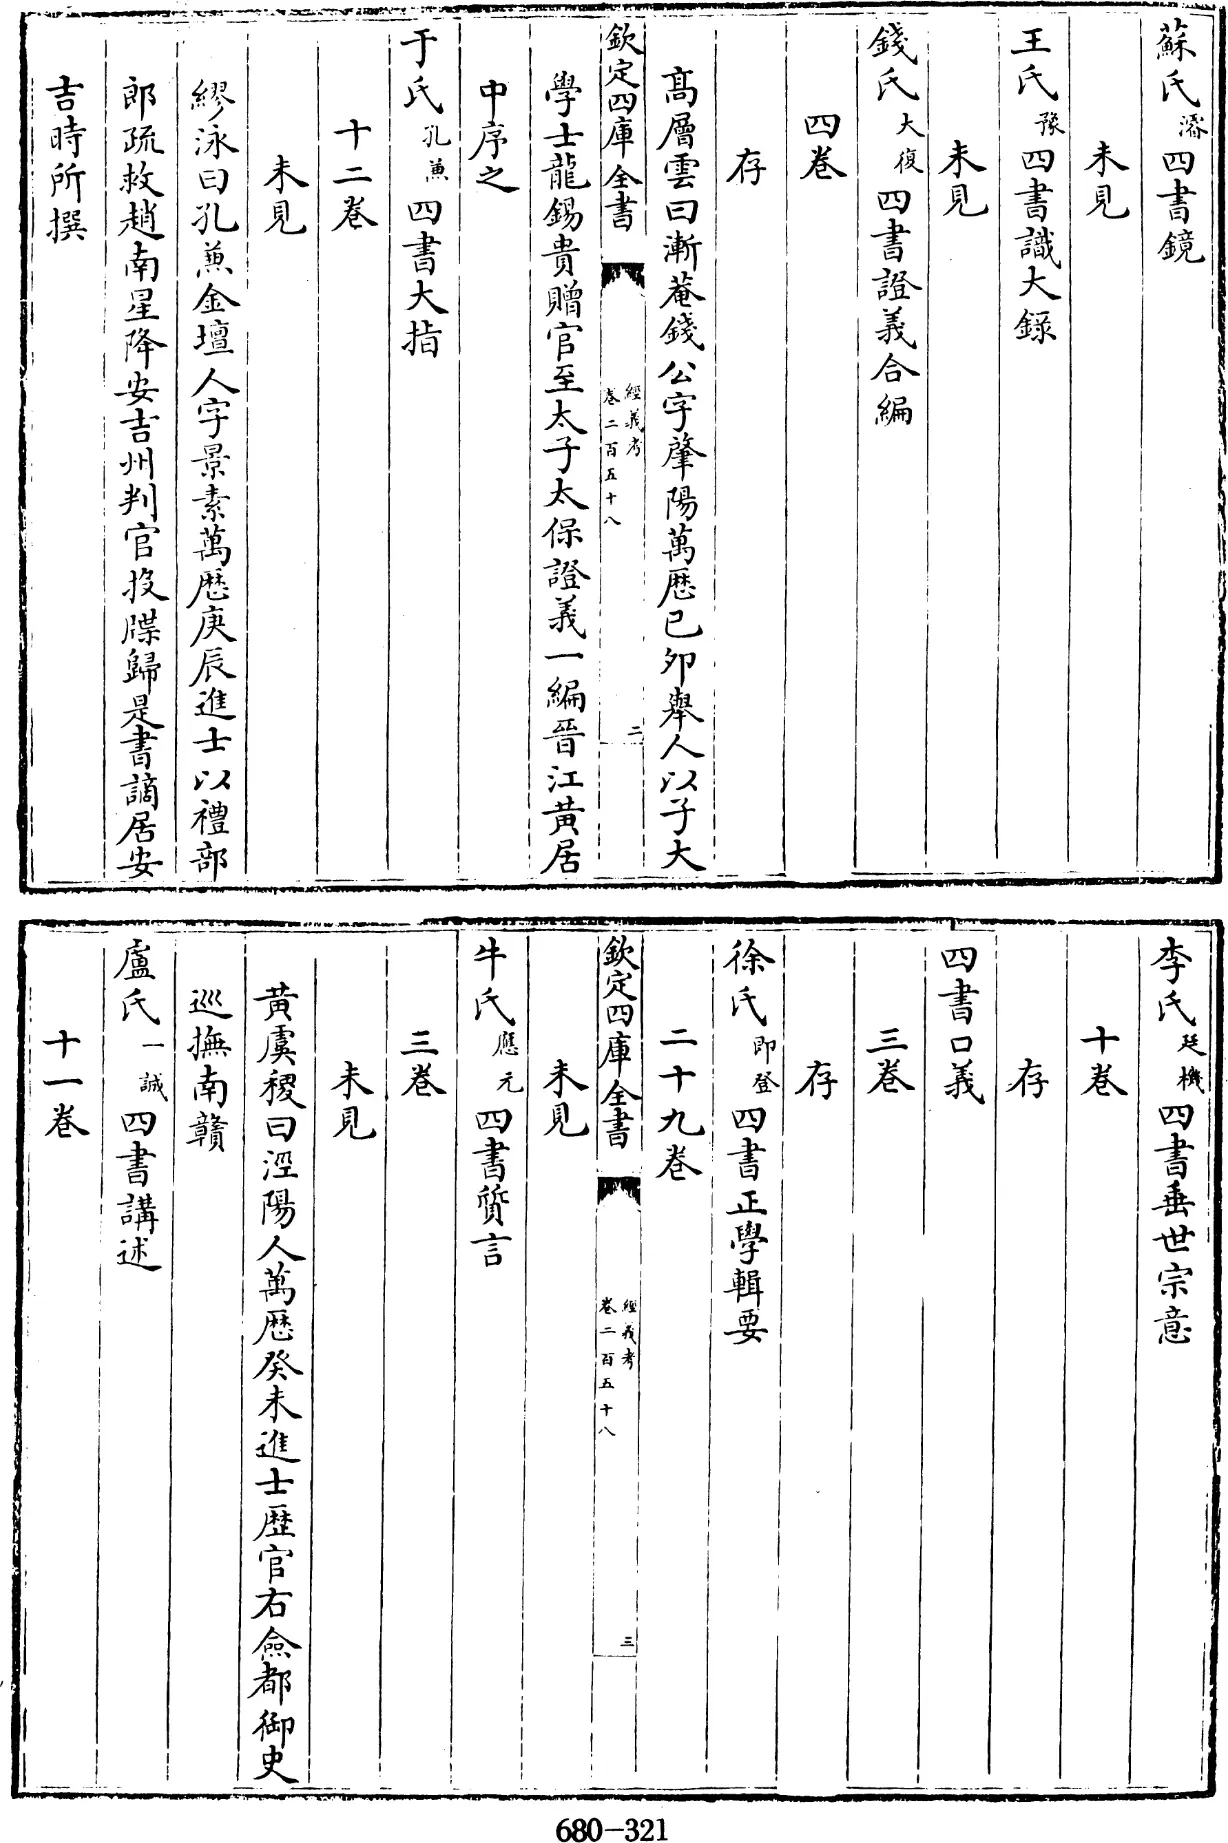 蘇氏濬四書鏡
未見
王氏豫四書識大錄
未見
錢氏大復四書證義合編
四卷
存
高層雲曰漸菴錢公字肇陽萬厯己卯舉人以子大
欽定四庫全書
經義考
卷二百五十八
二
學士龍錫貴贈官至太子太保證義一編晉江黃居
中序之
于氏孔兼四書大指
十二卷
未見
繆泳曰孔兼金壇人字景素萬厯庚辰進士以禮部
郎疏救趙南星降安吉州判官投牒歸是書謫居安
吉時所撰
李氏廷機四書垂世宗意
十卷
存
四書口義
三卷
存
徐氏即登四書正學輯要
二十九卷
欽定四庫全書
經義考
卷二百五十八
三
未見
牛氏應元四書質言
三卷
未見
黃虞稷曰涇陽人萬厯癸未進士歷官右僉都御史
巡撫南贛
盧氏一誠四書講述
十一卷
680-321